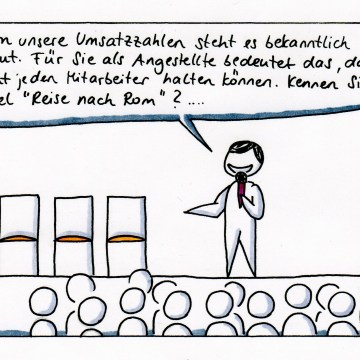 unsere Umsatzzahlen steht es bekanntlich
Für Sie als Angestellte bedeutet das,
jeden Mitarbeiter halten können. Kennen
"Reise nach Rom"? ....